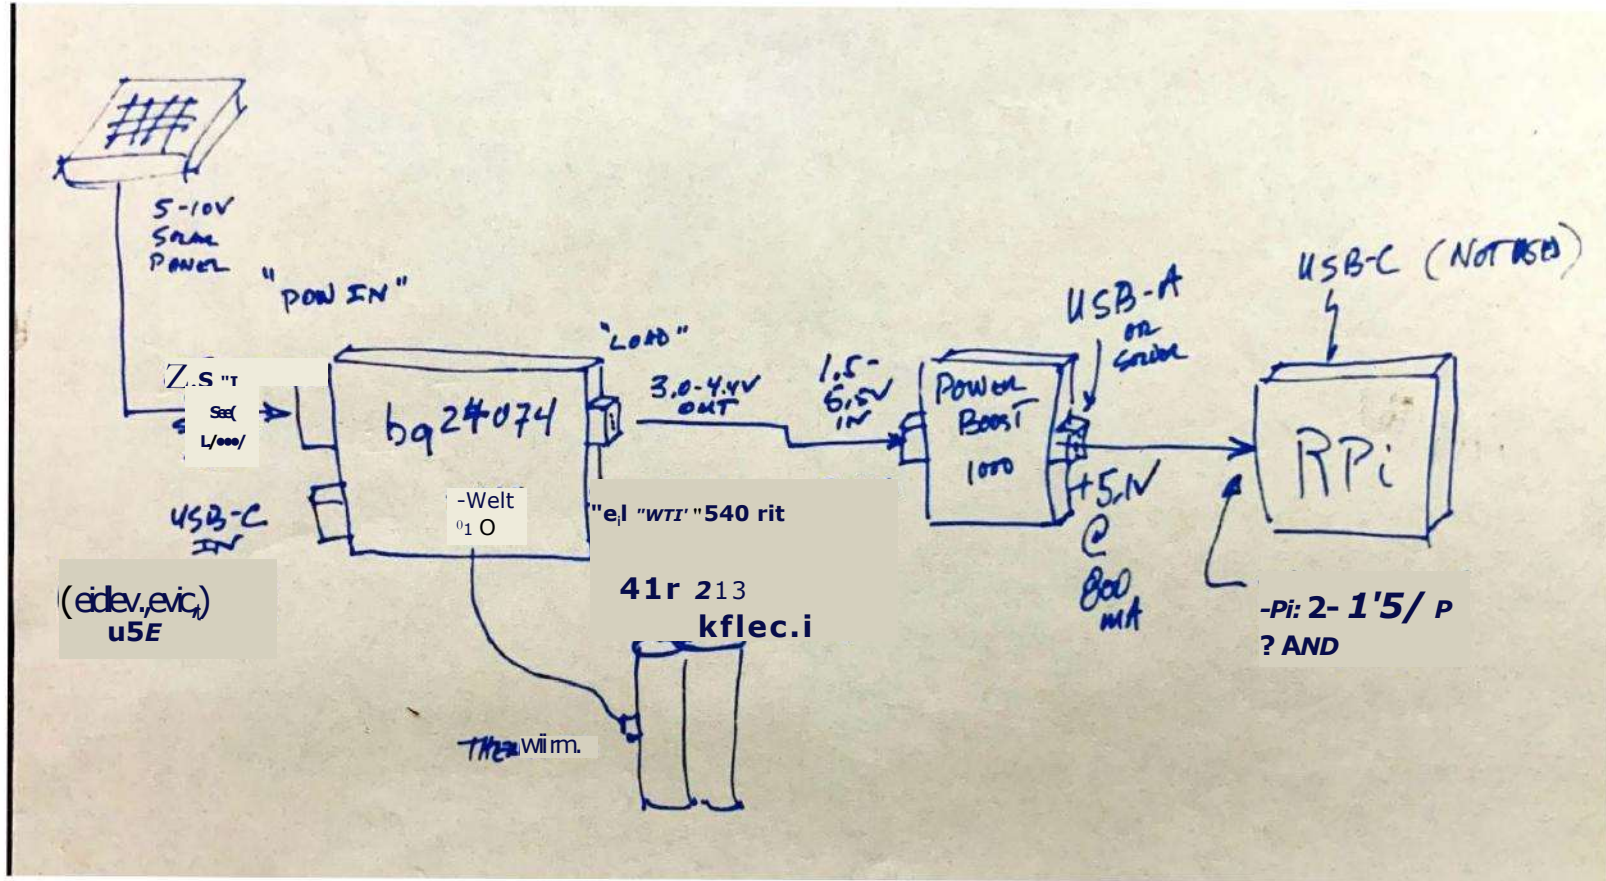 5-10V
SOLAR
PANEL
"POW IN"
Z.S "I
See(
L/•••/
USB-C
IN
(eidev.,evic,t)
u5E
bq24074
-Welt
01 O
"LOAD"
3.0-4.4V
OUT
"eil "WTI' "540 rit
41r 213
kflec.i
THERwiirm.
1.5-
5.5V
IN
POWER
BOOST
1000
USB-A
OR
SOLDER
+5.1V
@
800
mA
USB-C (NOT USED)
RPi
-Pi: 2- 1'5/ P
? AND